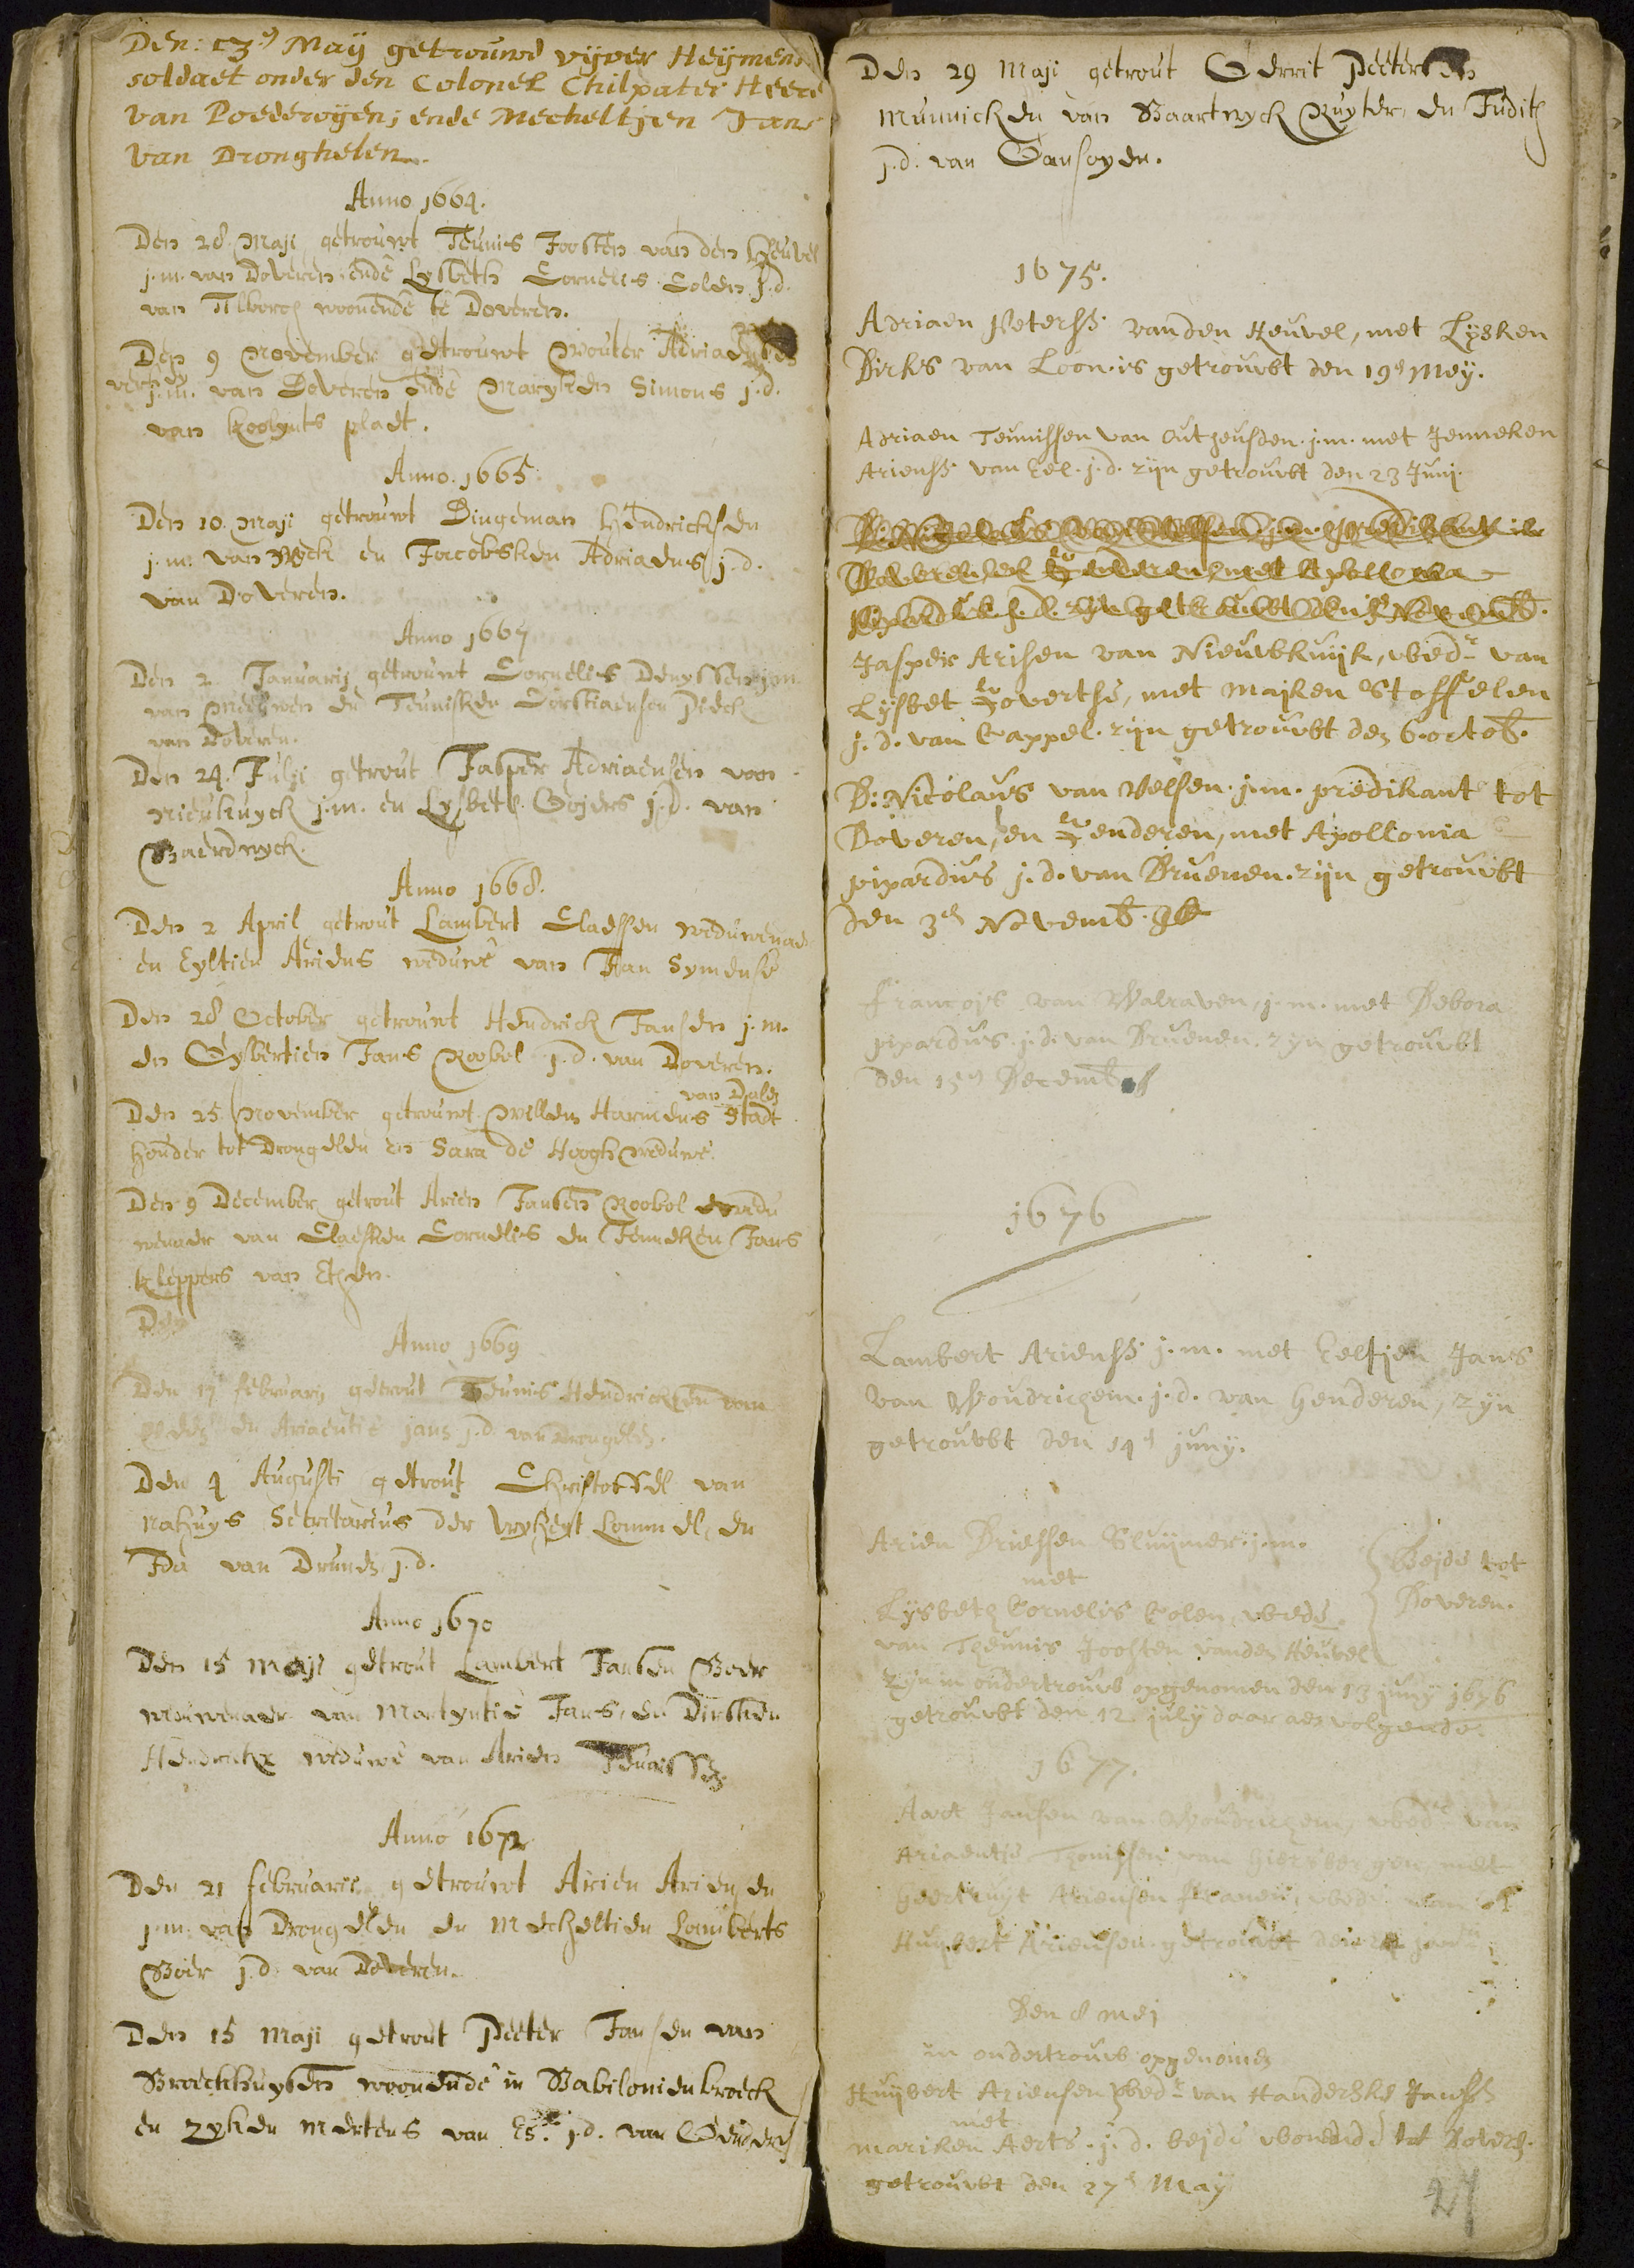 Den: 13.e May getrouwd vyver Heymens
soldaet onder den Colonel Chilpater Heere
van Poederoyen; ende Mecheltjen Jans
van Dronghelen.
Anno 1664.
Den 28 Maji getrouwt Teunis Joosten van den Heuvel
j.m. van Doveren ende Lysbeth Cornelis Colen j.d.
van Tilborch woonende te Doveren.
Den 9 November getrouwt Wouter Adriaensen
j.m. van Doveren ende Maryken Simons j.d.
van plaet.
Anno. 1665.
Den 10. Maji getrouwt Dingeman Hendricksen
j.m. van en Jacobsken Adriaens j.d.
van Doveren.
Anno 1667
Den 2 Januarij getrouwt Cornelis Denyssen j.m.
van Meeuwen en Teunisken Corstiaensen Pieck
van Doveren.
Den 24. Julji getrout Jasper Adriaensen van
Nieukuyck j.m. en Lysbeth Gojers j.d. van
Baerdwyck.
Anno 1668.
Den 2 April getrout Lambert Claessen weduwenae
en Eyltien Ariens weduwe van Jan Symense
Den 28 October getrouwt Hendrick Jansen j.m.
en Gysbertien Jans Roobol j.d. van Doveren.
van Dalen
Den 25 November getrouwt Willem Harmens Stadt
houder tot Drongelen en Sara de Hoogh weduwe.
Den 9 December getrout Arien Jansen Roobol wedu
wenaer van Claesken Cornelis en Jenneken Jans
kleppers van Ethen.
Den
Anno 1669
Den 17 februarij getrout Teunis Hendricksen van
en Ariaentie jans j.d. van Drongelen.
Den 4 Augusti getrout Christoffel van
Nahuys Secretarius der Vryheyt Lommel, en
Ida van Drunen j.d.
Anno 1670
Den 15 Maji getrout Lambert Jansen Boer
weduwenaer van Martyntie Jans, en Dirsken
Hendrickx weduwe van Arien Teunissz.
Anno 1672
Den 21 februarij getrouwt Arien Ariensen
j.m. van Drongelen en Mecheltien Lamberts
Boer j.d. van Doveren.
Den 15 Maji getrout Peeter Jansen van
Broeckhuysen woonende in Babilonienbroeck
en Zyken Mertens van Es. j.d. van Genderen
Den 29 Maji getrout Gerrit Peetersen
Munnicken van Baartwyck Ruyter, en Judith
j.d. van Gansoyen.
1675.
Adriaen Peterss. vanden Heuvel, met Lysken
Dirks van Loon. is getrouwt den 19e Mey.
Adriaen Teunissen van Outheusden. j.m. met Jenneken
Arienss. van Eel. j.d. zijn getrouwt den 23 Juni.
Jasper Arisen van Nieuwkuijk, wedr van
Lijsbet Goverthe, met Majken Stoffelen
j.d. van Cappel. zijn getrouwt den 6. octob.
D: Nicolaus van Velsen. j.m. predikant tot
Doveren, en Genderen, met Apollonia
pixardus j.d. van Drunen. zijn getrouwt
den 3en Novemb.
Francojs van Walraven, j.m. met Debora
pixardus. j.d. van Drunen. zyn getrouwt
den 15e Decemb
1676
Lambert Arienss. j.m. met Eeltjen Jans
van Woudrichem. j.d. van henderen, zyn
getrouwt den 14e juny.
Arien Driessen Sluijmer. j.m.
met
Lysbeth Cornelis Colen, wede.
van Theunis Joosten vanden Heuvel
} Bejde tot
Doveren.
Zyn in ondertrouw opgenomen den 13 juny 1676
getrouwt den 12 july daar aen volgende.
1677.
Aart Jansen van Woudrichem, wedr van
Ariaentje Thonissen van hiersbergen, met
Geertruyt Ariensen, wede. van
Huybert Ariensen. getrouwt den
Den 8 mej
in ondertrouw opgenomen
Huybert Ariensen wedr van Handerske Janss
met
mariken Aerts. j.d. bejde wonende tot Doveren.
getrouwt den 27e May
27